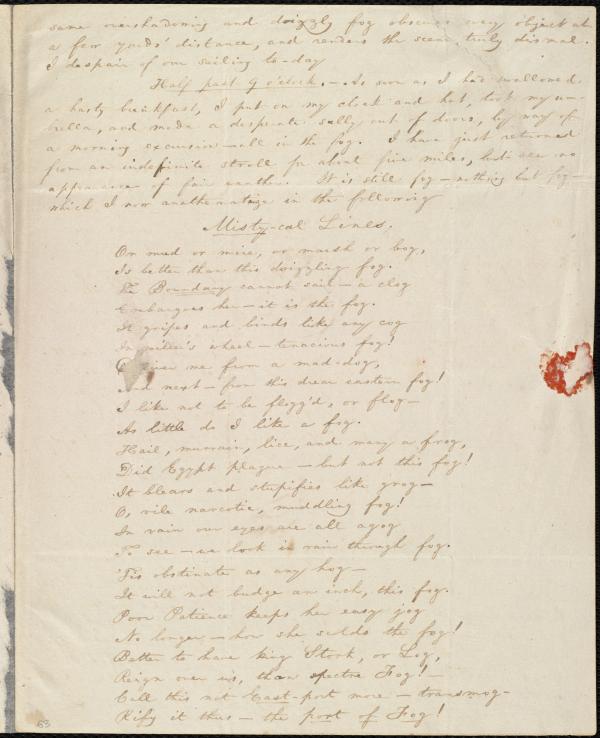 same overshadowing and drizzly fog obscures every object at
a few yards' distance, and renders the scene truly dismal.
I despair of our sailing to-day
Half past 9 o'clock. – As soon as I had swallowed
a hasty breakfast, I put on my cloak and hat, took my um-
brella, and made a desperate sally out of doors, by way of
a morning excursion – all in the fog. I have just returned
from an indefinite stroll for about five miles, but see no
appearance of fair weather. It is still fog – nothing but fog –
which I now anathematize in the following
Misty-cal Lines.
Or mud or mire, or marsh or bog,
Is better than this drizzling fog.
The Boundary cannot sail – a clog
Embargoes her – it is the fog.
It gripes and binds like any cog
In miller's wheel – tenacious fog!
me from a mad-dog,
And next – from this drear eastern fog!
I like not to be flogg'd, or flog –
As little do I like a fog.
Hail, murrain, lice, and many a frog,
Did Egypt plague – but not this fog!
It blears and stupifies like grog –
O, vile narcotic, muddling fog!
In vain our eyes are all agog
To see – we look in vain through fog.
'Tis obstinate as any hog –
It will not budge an inch, this fog.
Poor Patience keeps her easy jog
No longer – how she scolds the fog!
Better to have king Stork, or Log,
Reign over us, than spectre Fog! –
Call this not East-port more – transmog-
Rify it thus – the port of Fog!
83